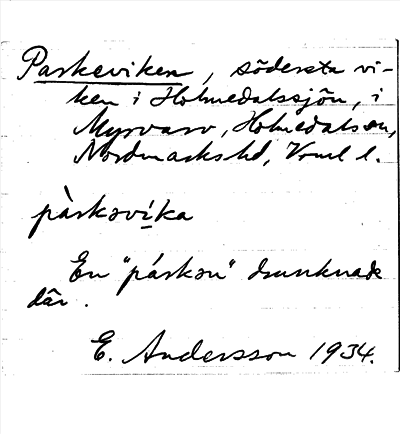 Parkeviken, södersta vi-
ken i Holmedalssjön, i
Myrvarv, Holmedals sn,
Nordmarks hd, Vrml l.
pàrkəvíka
En "párkən" drunknade
där.
E. Andersson 1934.